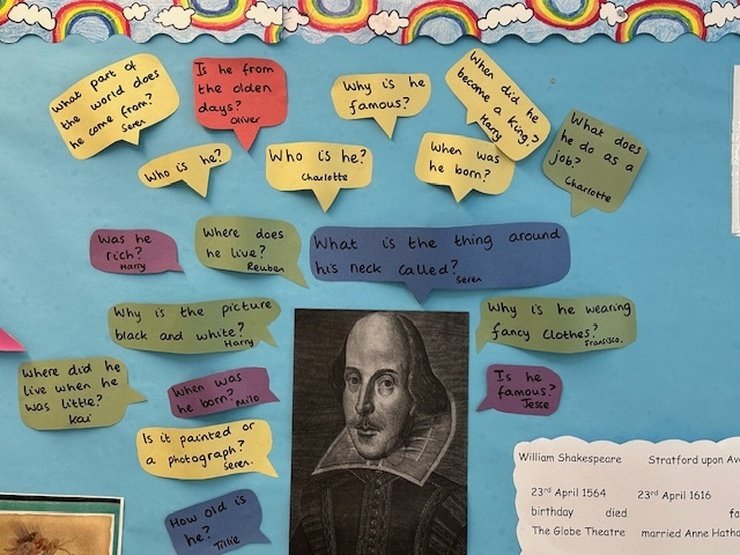 What part of
the world does
he come from?
Seren
Is he from
the olden
days?
Oliver
Why is he
famous?
When did he
become a King?
Harry
What does
he do as a
job?
Charlotte
Who is he?
Who is he?
Charlotte
When was
he born?
Was he
rich?
Harry
Where does
he live?
Reuben
What is the thing around
his neck called?
Seren
Why is the picture
black and white?
Harry
Why is he wearing
fancy clothes?
Fransisco.
Where did he
live when he
was little?
Kai
When was
he born?
Milo
Is he
famous?
Jesse
Is it painted or
a photograph?
Seren.
How old is
he?
Tillie
William Shakespeare Stratford upon Av
23rd April 1564 23rd April 1616
birthday died fa
The Globe Theatre married Anne Hatha